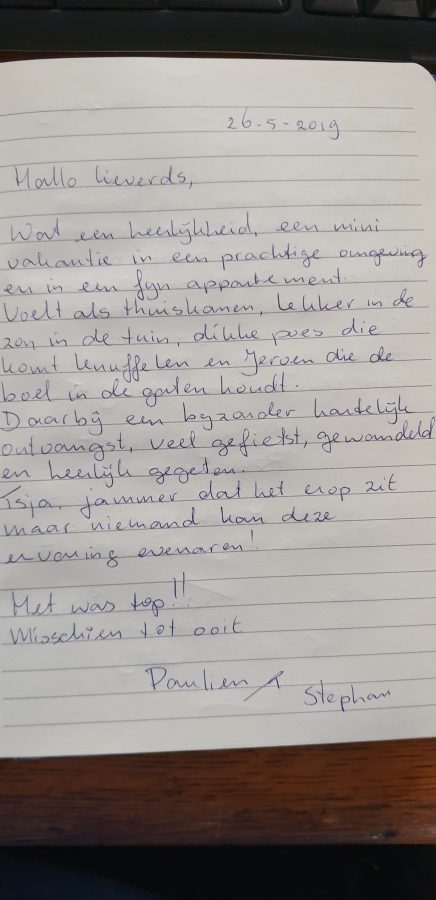 26-5-2019
Hallo lieverds,
Wat een heerlijkheid, een mini
vakantie in een prachtige omgeving
en in een fijn appartement.
Voelt als thuiskomen, lekker in de
zon in de tuin, dikke poes die
komt knuffelen en Jeroen die de
boel in de gaten houdt.
Daarbij een byzonder hartelijk
ontvangst, veel gefietst, gewandeld
en heerlijk gegeten.
Tsja, jammer dat het erop zit
maar niemand kan deze
ervaring evenaren!
Het was top!!
Misschien tot ooit
Paulien
Stephan